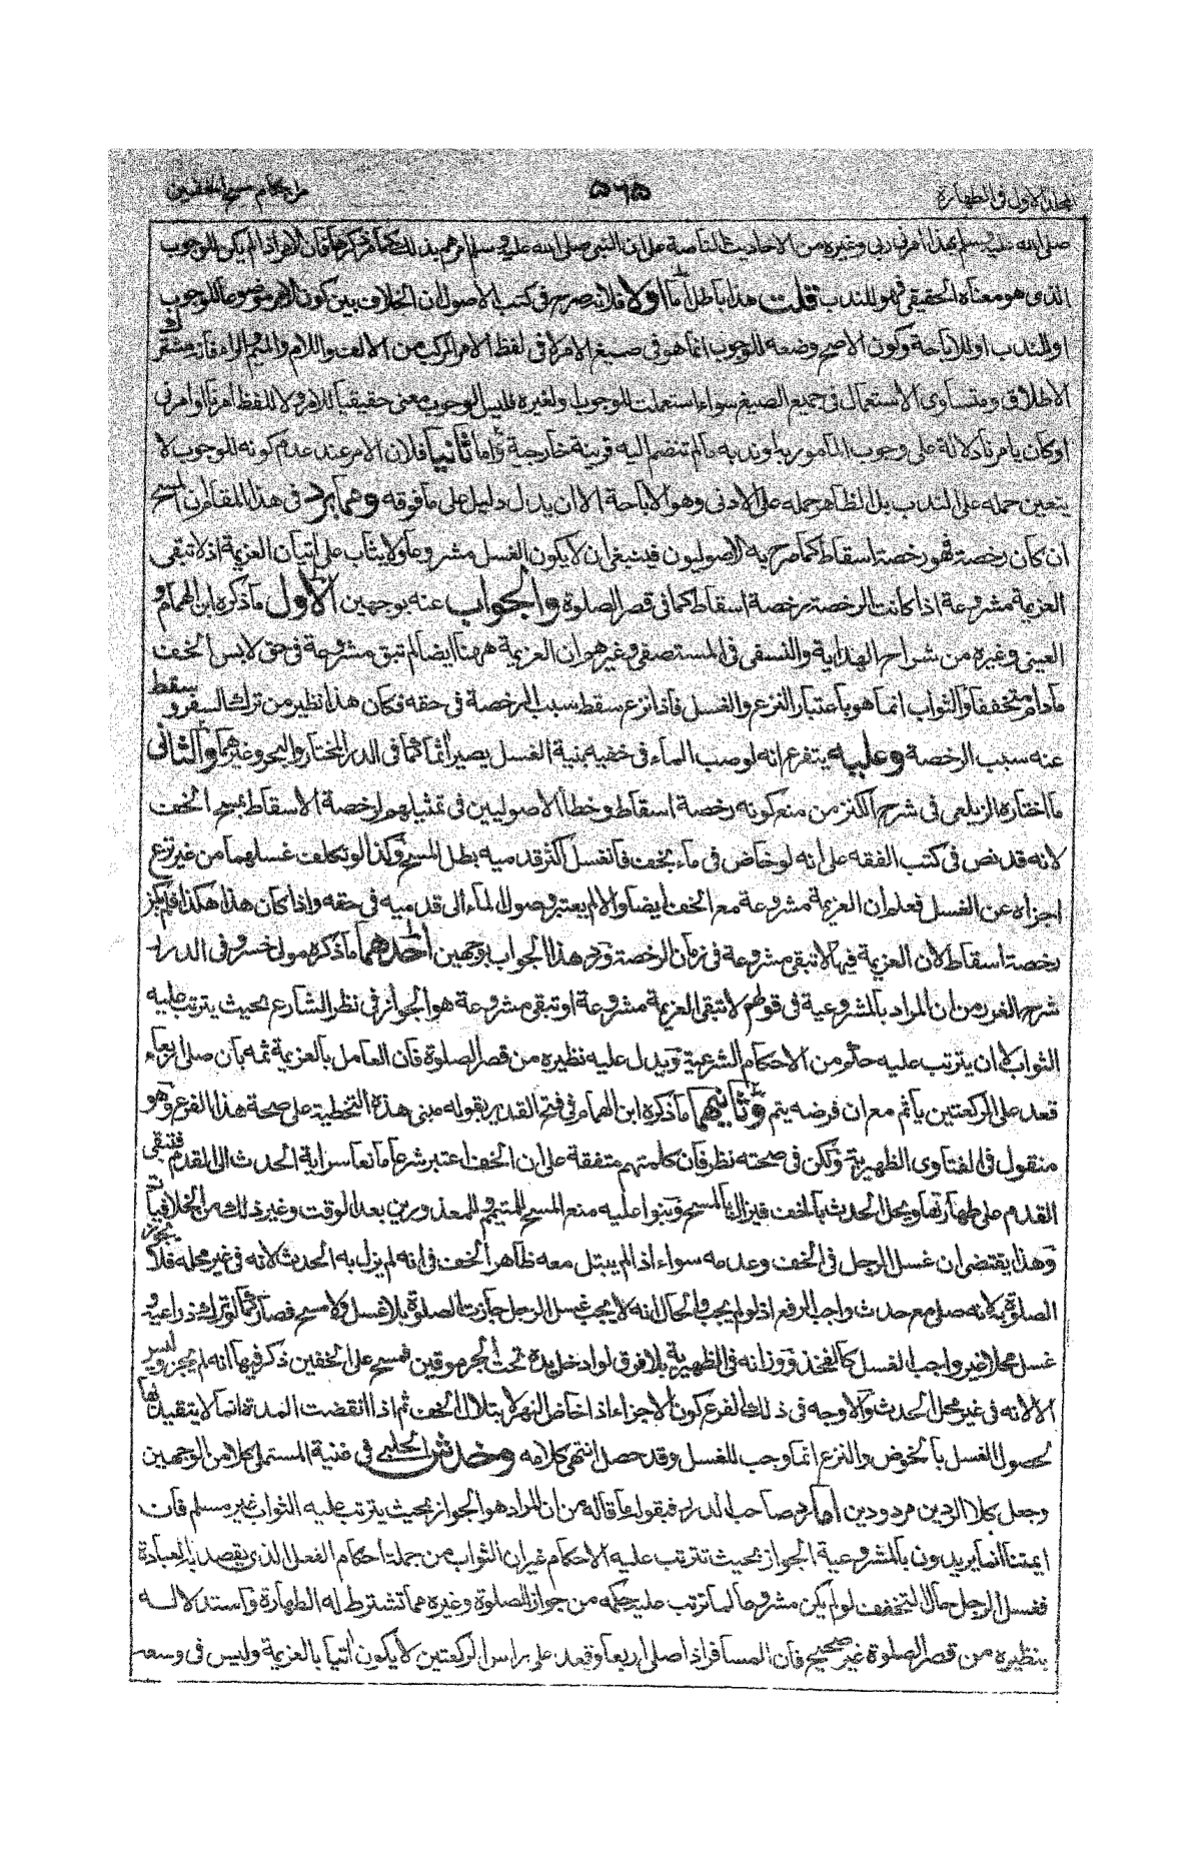 المجلد الاول فى الطهارة ٥٦٥ من احكام مسح الخفين
صلى الله عليه وسلم بهذا امرنى ربى وغيره من الاحاديث الناصة على ان النبى صلى الله عليه وسلم امرهم بذلك كما مر ذكرها فان الامر اذا لم يكن للوجوب
الذى هو معناه الحقيقى فهو للندب قلت هذا باطل اما اولا فلانه صرح فى كتب الاصول ان الخلاف بين كون الامر موضوعا للوجوب
او للندب او للاباحة وكون الاصح وضعه للوجوب انما هو فى صيغ الامر لا فى لفظ الامر المركب من الالف واللام والميم والراء فانه مشترك
الاطلاق ومتساوى الاستعمال فى جميع الصيغ سواء استعملت للوجوب او لغيره فليس الوجوب معنى حقيقيا للامر ولا للفظ امرنا او امرنى
او كان يامرنا دلالة على وجوب المامور به او ندبه ما لم تنضم اليه قرينة خارجية واما ثانيا فلان الامر عند عدم كونه للوجوب لا
يتعين حمله على الندب بل الظاهر حمله على الادنى وهو الاباحة الا ان يدل دليل على ما فوقه ومما يرد فى هذا المقام ان المسح
ان كان رخصة فهو رخصة اسقاط كما صرح به الاصوليون فينبغى ان لا يكون الغسل مشروعا ولا يثاب على اتيان العزيمة اذ لا تبقى
العزيمة مشروعة اذا كانت الرخصة رخصة اسقاط كما فى قصر الصلوة والجواب عنه بوجهين الاول ما ذكره ابن الهمام و
العينى وغيره من شراح الهداية والنسفى فى المستصفى وغيرهم ان العزيمة ههنا ايضا لم تبق مشروعة فى حق لابس الخف
ما دام متخففا والثواب انما هو باعتبار النزع والغسل فاذا نزع سقط سبب الرخصة فى حقه فكان هذا نظير من ترك السفر وسقط
عنه سبب الرخصة وعليه يتفرع انه لو صب الماء فى خفيه بنية الغسل يصير اثما كما فى الدر المختار والبحر وغيرهما والثانى
ما اختاره الزيلعى فى شرح الكنز من منع كونه رخصة اسقاط وخطأ الاصوليين فى تمثيلهم لرخصة الاسقاط بمسح الخف
لانه قد نص فى كتب الفقه على انه لو خاض فى ماء بخف فانغسل اكثر قدميه بطل المسح وكذا لو تكلف غسلهما من غير نزع
اجزاه عن الغسل فعلم ان العزيمة مشروعة مع الخف ايضا والا لم يعتبر وصول الماء الى قدميه فى حقه واذا كان هذا هكذا فلم يكن
رخصة اسقاط لان العزيمة فيها لا تبقى مشروعة فى زمان الرخصة ورد هذا الجواب بوجهين احدهما ما ذكره مولى خسرو فى الدرر
شرح الغرر من ان المراد بالمشروعية فى قولهم لا تبقى العزيمة مشروعة او تبقى مشروعة هو الجواز فى نظر الشارع بحيث يترتب عليه
الثواب لا ان يترتب عليه حكم من الاحكام الشرعية ويدل عليه نظيره من قصر الصلوة فان العامل بالعزيمة ثمه بان صلى اربعا و
قعد على الركعتين ياثم مع ان فرضه يتم وثانيهما ما ذكره ابن الهمام فى فتح القدير بقوله مبنى هذه التخطية على صحة هذا الفرع وهو
منقول فى الفتاوى الظهيرية ولكن فى صحته نظر فان كلمتهم متفقة على ان الخف اعتبر شرعا مانعا سراية الحدث الى القدم فتبقى
القدم على طهارتها ويحل الحدث بالخف فيزال بالمسح وبنوا عليه منع المسح للمتيمم والمعذورين بعد الوقت وغير ذلك من الخلافيات
وهذا يقتضى ان غسل الرجل فى الخف وعدمه سواء اذا لم يبتل معه ظاهر الخف فى انه لم يزل به الحدث لانه فى غير محله فلا تجوز
الصلوة به لانه صلى مع حدث واجب الرفع اذ لو لم يجب والحال انه لا يجب غسل الرجل جازت الصلوة بلا غسل ولا مسح فصار كما لو ترك ذراعيه و
غسل محلا غير واجب الغسل كالفخذ ووزانه فى الظهيرية بلا فرق لو ادخل يده تحت الجرموقين فمسح على الخفين ذكر فيها انه لم يجز وليس
الا لانه فى غير محل الحدث والاوجه فى ذلك الفرع كون الاجزاء اذا خاض النهر لابتلال الخف ثم اذا انقضت المدة انما لا يتقيد بها
لحصول الغسل بالخوض والنزع انما وجب للغسل وقد حصل انتهى كلامه وخدش الحلبى فى غنية المستملى كلا من الوجهين
وجعل كلا الردين مردودين اما رد صاحب الدرر فبقوله ما قاله من ان المراد هو الجواز بحيث يترتب عليه الثواب غير مسلم فان
ايمتنا انما يريدون بالمشروعية الجواز بحيث تترتب عليه الاحكام غير ان الثواب من جملة احكام الفعل الذى يقصد به العبادة
فغسل الرجل حال التخفف لو لم يكن مشروعا لما ترتب عليه حكمه من جواز الصلوة وغيره مما تشترط له الطهارة واستدلاله
بنظيره من قصر الصلوة غير صحيح فان المسافر اذا صلى اربعا وقعد على راس الركعتين لا يكون اتيا بالعزيمة وليس فى وسعه